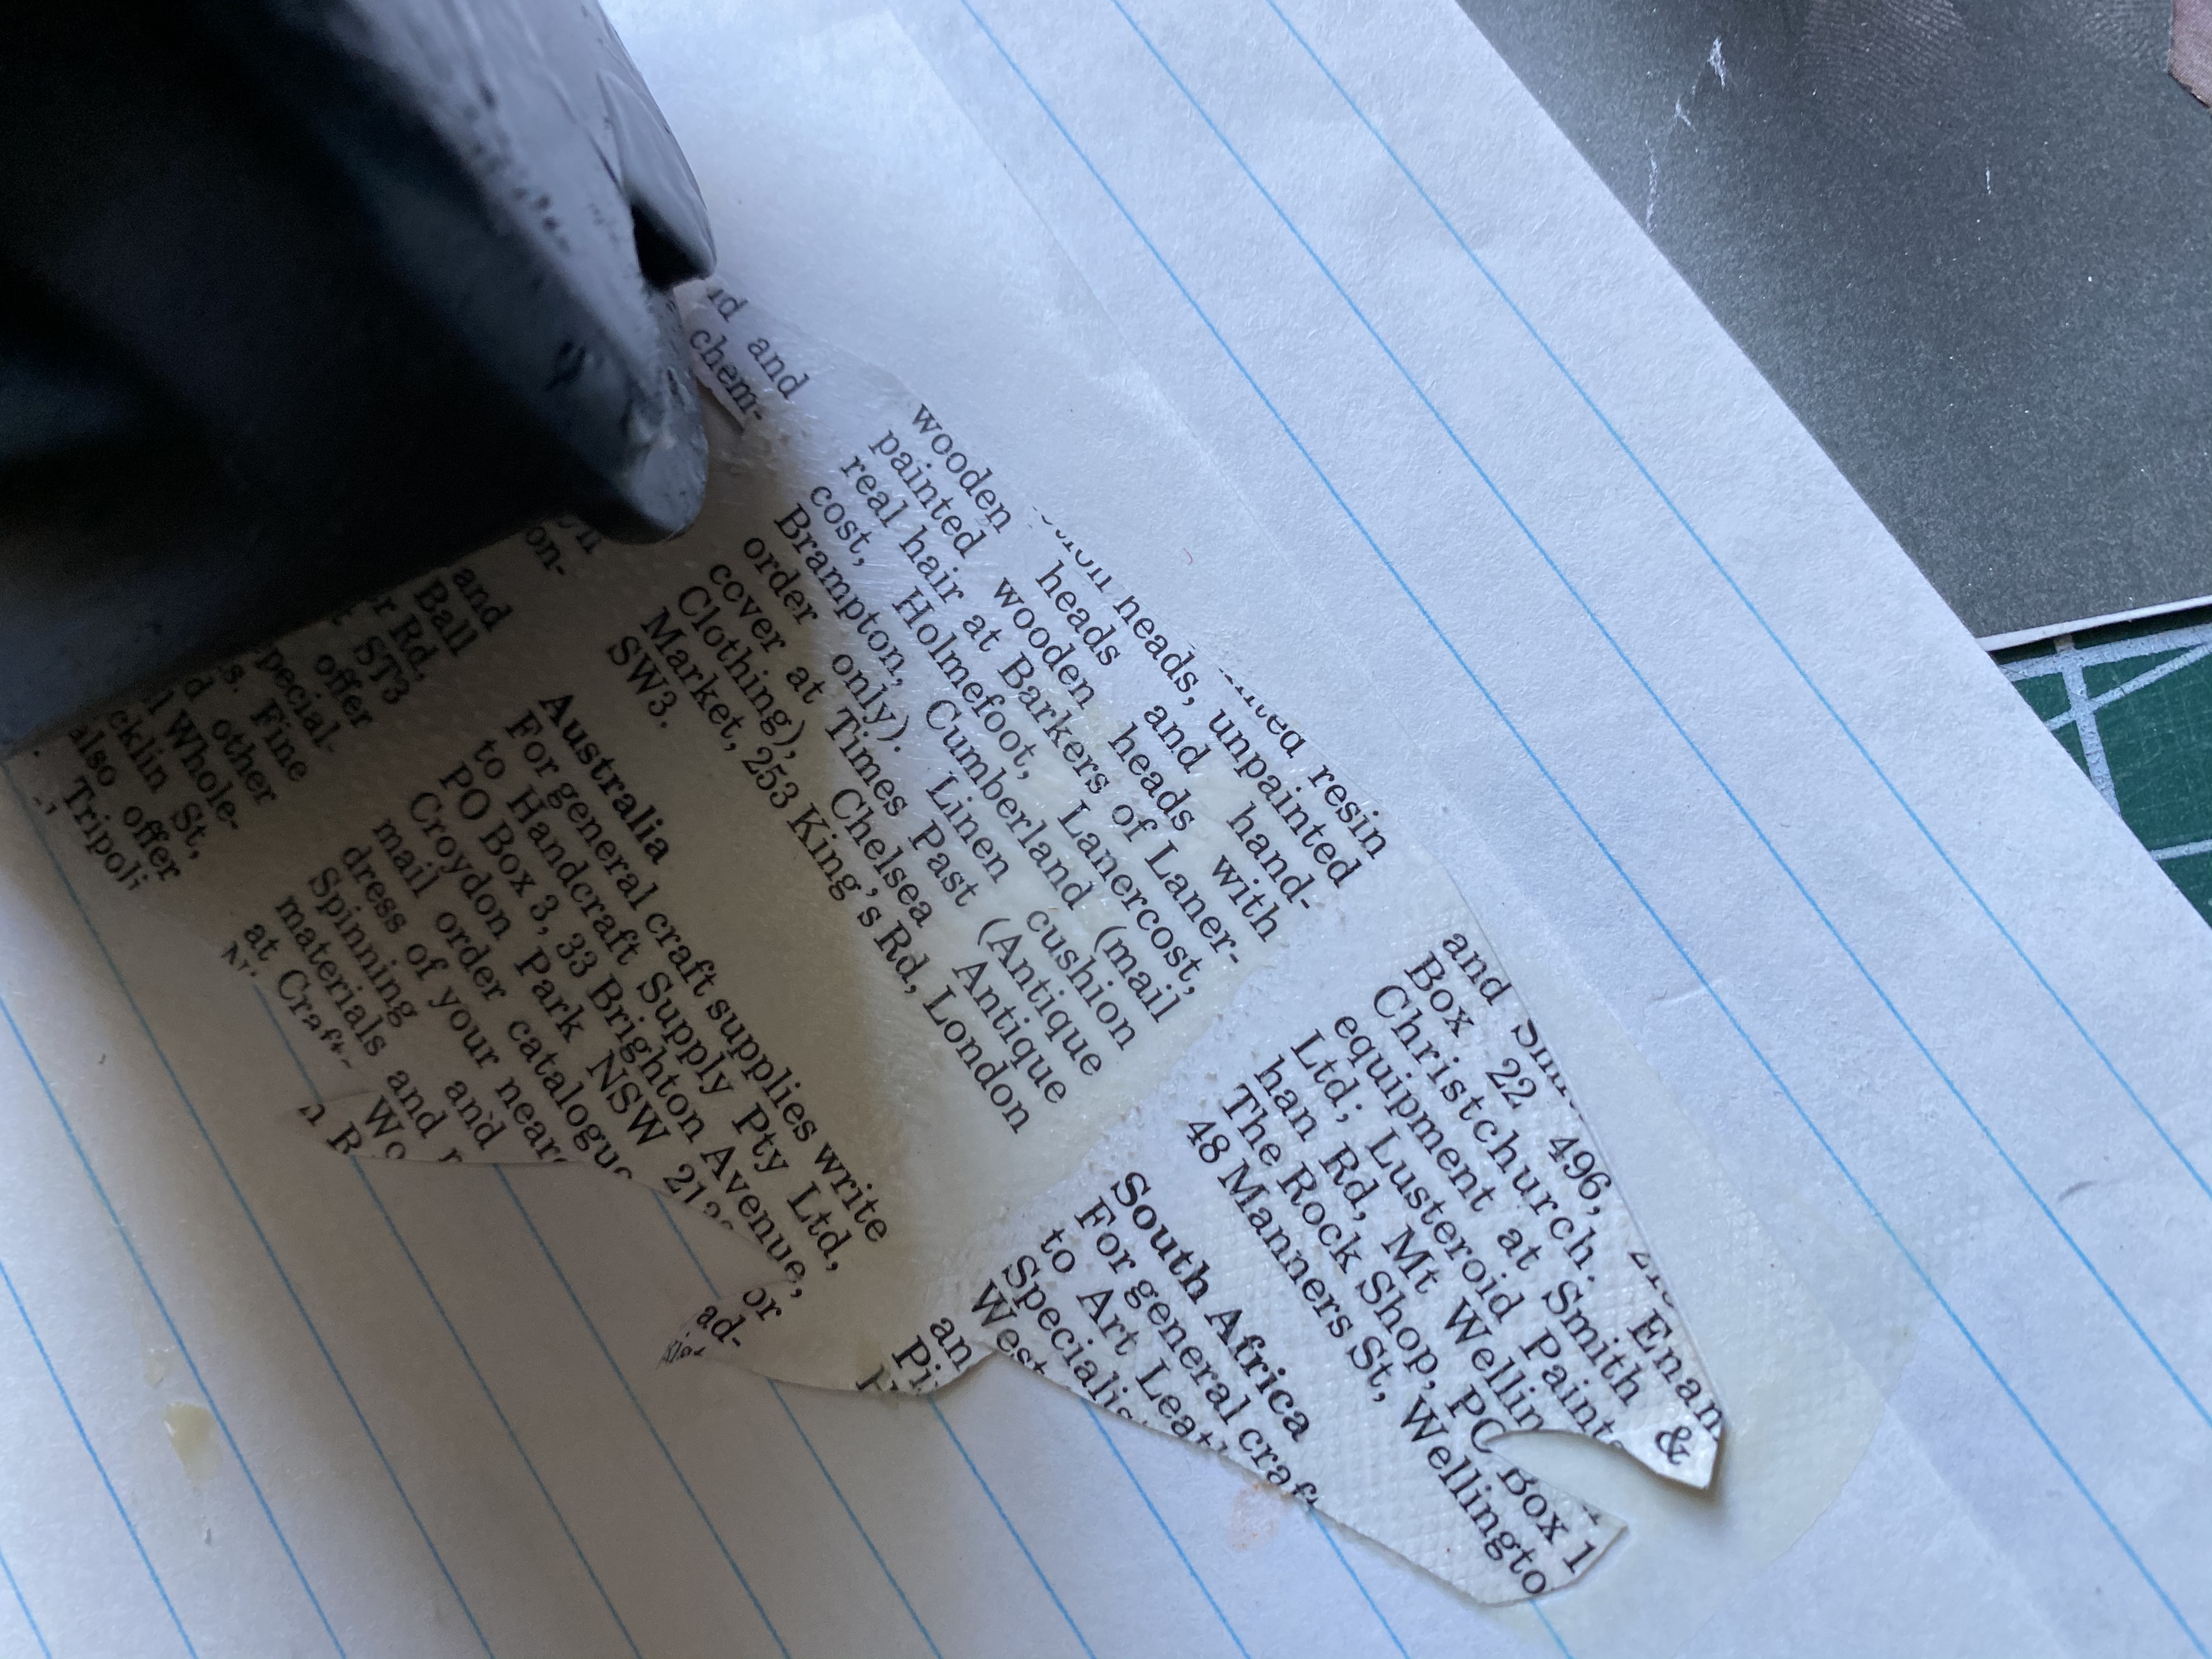 and
chem-
resin
heads, unpainted
wooden heads and hand-
painted wooden heads with
real hair at Barkers of Laner-
cost, Holmefoot, Lanercost,
Brampton, Cumberland (mail
order only). Linen cushion
cover at Times Past (Antique
Clothing), Chelsea Antique
Market, 253 King's Rd, London
SW3.
and
Ball
r Rd,
ST3
offer
pecial-
s. Fine
d other
l Whole-
cklin St,
also offer
Tripoli
on-
Australia
For general craft supplies write
to Handcraft Supply Pty Ltd,
PO Box 3, 33 Brighton Avenue,
Croydon Park NSW or
mail order catalogue ad-
dress of your
Spinning and
materials and
at Craft-
Wo
n R
and
Box 22 496,
Christchurch. Enam
equipment at Smith &
Ltd; Lusteroid Paints
han Rd, Mt Wellin
The Rock Shop, PO Box 1
48 Manners St, Wellingto
South Africa
For general craft
to Art Leat
Specialis
West
an
Pi